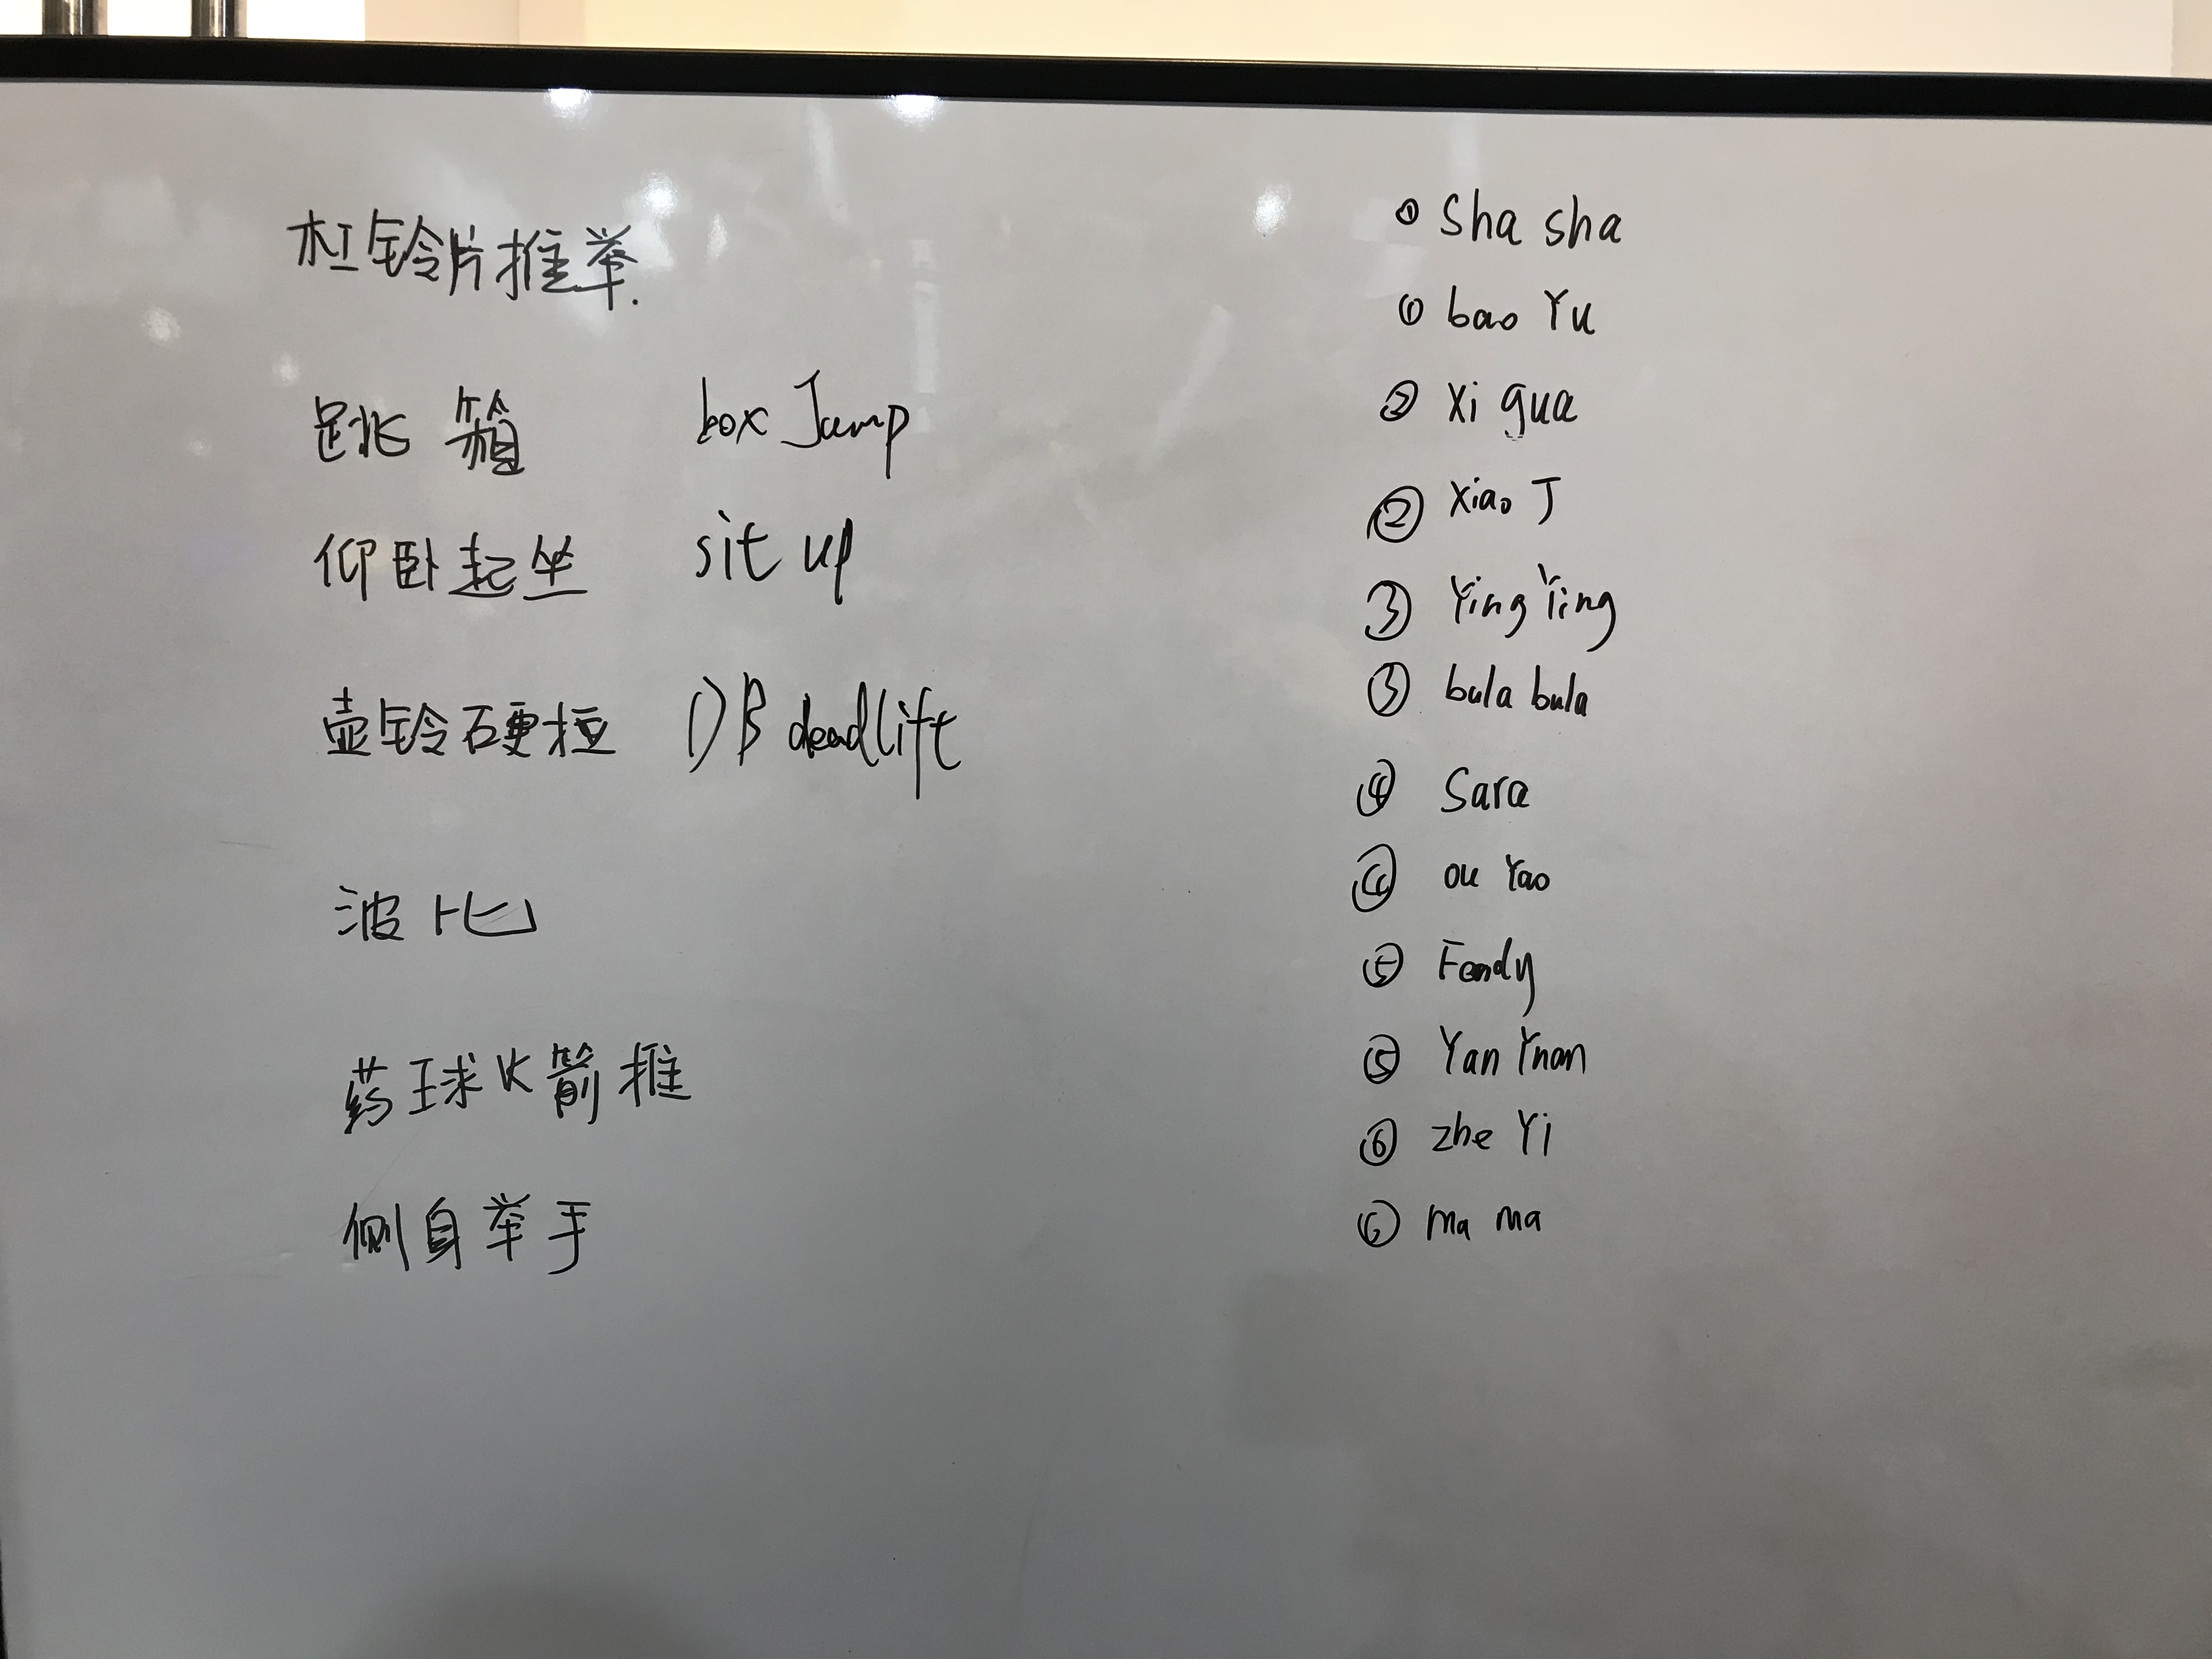 杠铃片推举.
跳箱 box Jump
仰卧起坐 sit up
壶铃硬拉 DB deadlift
波比
药球火箭推
侧身举手
① Sha sha
① bao Yu
② Xi gua
② Xiao J
③ Ying Ying
③ bula bula
④ Sara
④ ou Yao
⑤ Fendy
⑤ Yan Ynan
⑥ zhe Yi
⑥ ma ma